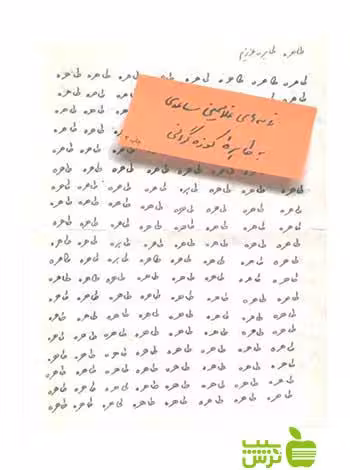 طاهره طاهره عزیزم
طاهره طاهره طاهره طاهره طاهره طاهره طاهره طاهره
نامه‌های غلامحسین ساعدی
به طاهره کوزه‌گرانی
طاهره طاهره طاهره
طاهره طاهره طاهره
طاهره طاهره طاهره
طاهره طاهره طاهره
طاهره طاهره طاهره طاهره طاهره طاهره طاهره
طاهره طاهره طاهره طاهره طاهره طاهره طاهره طاهره
طاهره طاهره طاهره طاهره طاهره طاهره طاهره
طاهره طاهره طاهره طاهره طاهره طاهره طاهره
طاهره طاهره طاهره طاهره طاهره طاهره طاهره طاهره
طاهره طاهره طاهره طاهره طاهره طاهره طاهره طاهره
طاهره طاهره طاهره طاهره طاهره طاهره طاهره
طاهره طاهره طاهره طاهره طاهره طاهره طاهره
طاهره طاهره طاهره طاهره طاهره طاهره طاهره
طاهره طاهره طاهره طاهره طاهره طاهره طاهره طاهره
طاهره طاهره طاهره طاهره طاهره طاهره طاهره طاهره
طاهره طاهره طاهره طاهره طاهره طاهره طاهره طاهره
طاهره طاهره طاهره طاهره طاهره طاهره طاهره طاهره
طاهره طاهره طاهره طاهره طاهره طاهره طاهره طاهره
سیب
ترش